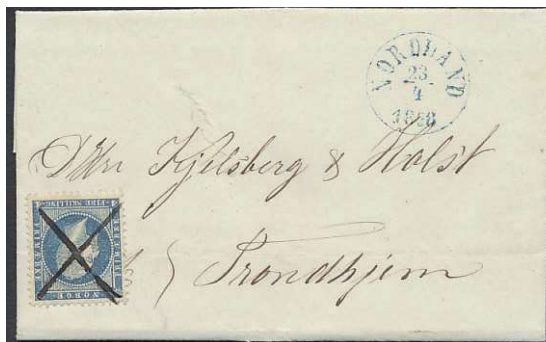 NORDLAND
23
4
1868
DHrr Kjelsberg & Holst
Trondhjem
FIRE SKILLING
FRIMÆRKE
NORGE